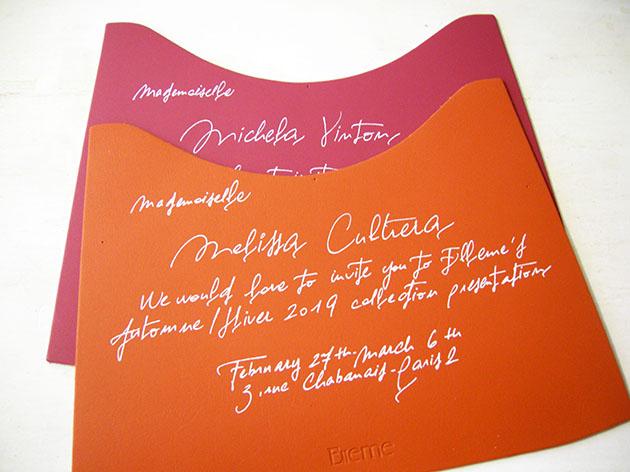 Mademoiselle
Michela Vintons
Mademoiselle
Melissa Cultrera
We would love to invite you to
Automne/Hiver 2019 collection presentation
February 27th-March 6th
3, rue Chabanais-Paris 2